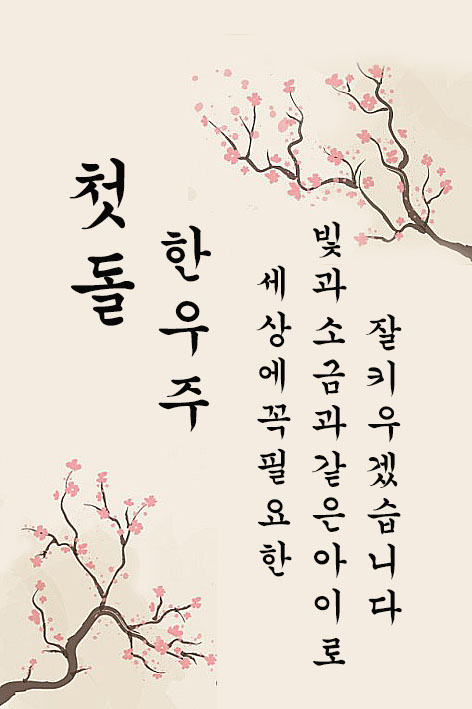 첫돌
한우주
세상에꼭필요한
빛과소금과같은아이로
잘키우겠습니다